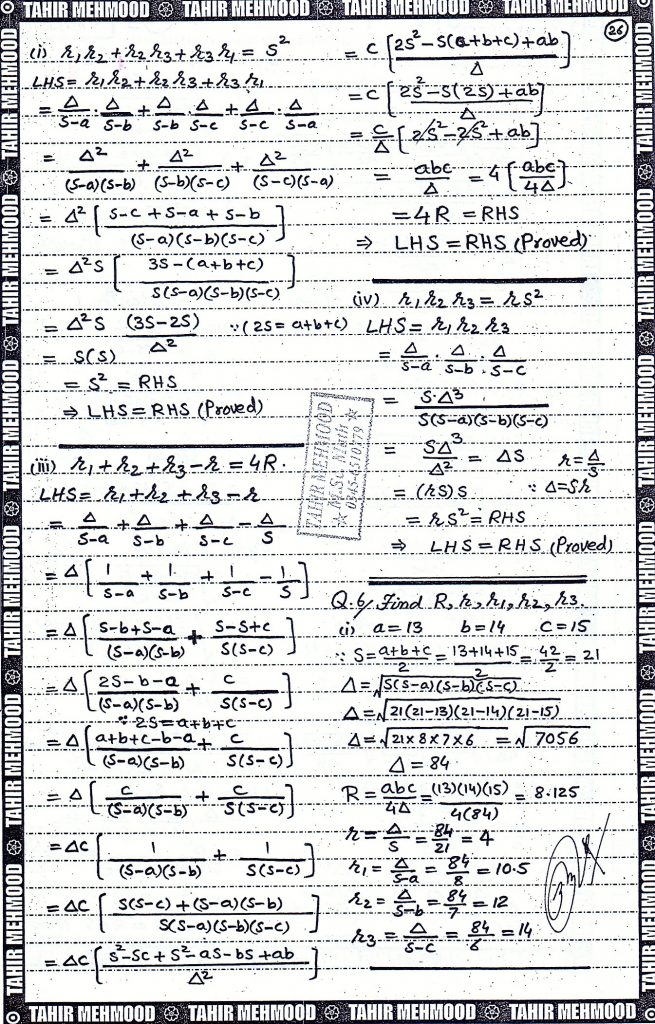 TAHIR MEHMOOD TAHIR MEHMOOD TAHIR MEHMOOD TAHIR MEHMOOD
26
(i) r₁r₂ + r₂r₃ + r₃r₁ = S²
LHS = r₁r₂ + r₂r₃ + r₃r₁
= Δ/(S-a) · Δ/(S-b) + Δ/(S-b) · Δ/(S-c) + Δ/(S-c) · Δ/(S-a)
= Δ²/((S-a)(S-b)) + Δ²/((S-b)(S-c)) + Δ²/((S-c)(S-a))
= Δ² [ (S-c + S-a + S-b)/((S-a)(S-b)(S-c)) ]
= Δ²S [ (3S-(a+b+c))/(S(S-a)(S-b)(S-c)) ]
= Δ²S (3S-2S)/Δ² ∵(2S = a+b+c)
= S(S)
= S² = RHS
⇒ LHS = RHS (Proved)
(iii) r₁ + r₂ + r₃ - r = 4R.
LHS = r₁ + r₂ + r₃ - r
= Δ/(S-a) + Δ/(S-b) + Δ/(S-c) - Δ/S
= Δ [ 1/(S-a) + 1/(S-b) + 1/(S-c) - 1/S ]
= Δ [ (S-b+S-a)/((S-a)(S-b)) + (S-S+c)/(S(S-c)) ]
= Δ [ (2S-b-a)/((S-a)(S-b)) + c/(S(S-c)) ]
∵ 2S = a+b+c
= Δ [ (a+b+c-b-a)/((S-a)(S-b)) + c/(S(S-c)) ]
= Δ [ c/((S-a)(S-b)) + c/(S(S-c)) ]
= Δc [ 1/((S-a)(S-b)) + 1/(S(S-c)) ]
= Δc [ (S(S-c) + (S-a)(S-b))/(S(S-a)(S-b)(S-c)) ]
= Δc [ (S²-Sc + S²-aS-bS+ab)/Δ² ]
= c [ (2S²-S(a+b+c)+ab)/Δ ]
= c [ (2S²-S(2S)+ab)/Δ ]
= c/Δ [ 2S²-2S²+ab ]
= abc/Δ = 4 [ abc/4Δ ]
= 4R = RHS
⇒ LHS = RHS (Proved)
(iv) r₁r₂r₃ = rS²
LHS = r₁r₂r₃
= Δ/(S-a) · Δ/(S-b) · Δ/(S-c)
= S·Δ³/(S(S-a)(S-b)(S-c))
= SΔ³/Δ² = ΔS r = Δ/S
= (rS)S ∵ Δ = Sr
= rS² = RHS
⇒ LHS = RHS (Proved)
TAHIR MEHMOOD
☆ M.Sc. Math ☆
Q.6/ Find R, r, r₁, r₂, r₃.
(i) a = 13 b = 14 C = 15
∵ S = (a+b+c)/2 = (13+14+15)/2 = 42/2 = 21
Δ = √(S(S-a)(S-b)(S-c))
Δ = √(21(21-13)(21-14)(21-15))
Δ = √(21x8x7x6) = √7056
Δ = 84
R = abc/4Δ = (13)(14)(15)/4(84) = 8.125
r = Δ/S = 84/21 = 4
r₁ = Δ/(S-a) = 84/8 = 10.5
r₂ = Δ/(S-b) = 84/7 = 12
r₃ = Δ/(S-c) = 84/6 = 14
TAHIR MEHMOOD TAHIR MEHMOOD TAHIR MEHMOOD TAHIR MEHMOOD